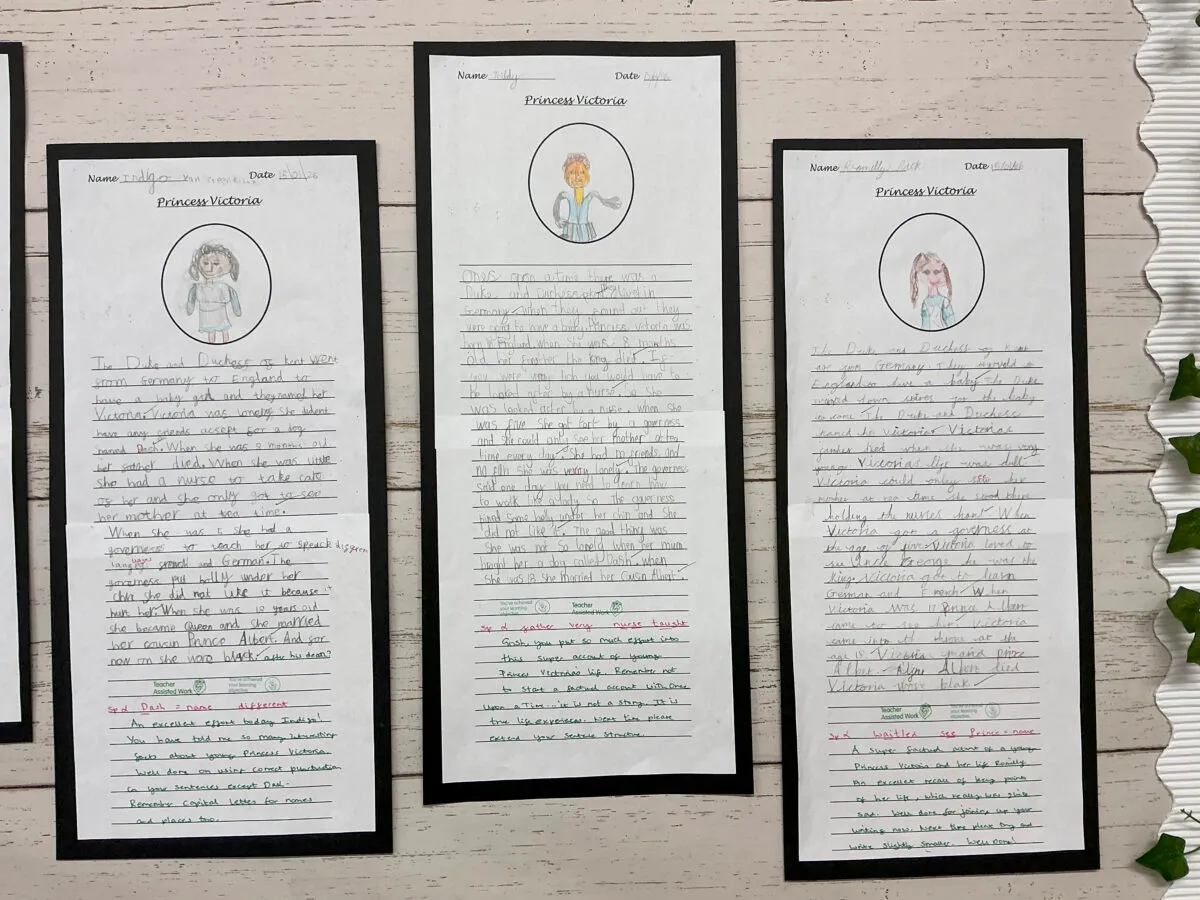 Name Indigo Date 15/01/26
Princess Victoria
The Duke and Duchess of kent went
from Germany to England to
have a baby girl and they named her
Victoria. Victoria was lonely she dident
have any friends accept for a dog
named Dash. When she was 8 months old
her father died. When she was little
she had a nurse to take care
of her and she only got to see
her mother at tea time.
When she was 5 she had a
governess to teach her to speack differen
french and German. The
goveness put holly under her
chin she did not like it because it
hurt her. When she was 18 years old
she became Queen and she married
her cousin Prince Albert. And for
now on she wore black. after his dean?
Teacher Assisted Work
You've achieved your learning objective
Sp Dash = name different
An excellent effort today Indigo!
You have told me so many interesting
facts about young Princess Victoria.
Well done on using correct punctuation
in your sentences except Dash.
Remember capital letters for names
and places too.
Name Date
Princess Victoria
Ones opon a time there was a
Duke and Duchess lived in
Germany when they found out they
were going to have a baby. Princess Victoria was
born in England. when she was 8 months
old her father the king died. If
you were very rich you would have to
be looked after by a nurse. so she
was looked after by a nurse. when she
was five She got by a governess
and she could only see her mother at tea
time every day. She had no friends and
no fun She was verry lonely. The governess
said one day you need to learn how
to walk like a lady so the governess
some holly under her chin and She
did not like it. The good thing was
She was not so lonely when her mum
her a dog called Dash. when
She was 18 she married her cousin Albert.
You've achieved your learning objective
Teacher Assisted Work
Sp father very nurse taught
Gosh, you put so much effort into
this super account of young
Princess Victoria's life. Remember not
to start a factual account with Once
Upon a Time... it is not a story. It is
true life experiences. Next time please
extend your sentence structure.
Name Romilly Date 15/01/26
Princess Victoria
The Duke and Duchess of Kent
Germany. They moved to
England to have a baby. The Duke
for the baby
to come The Duke and Duchess
named her Victoria Victorias
died when she was very
young Victorias life was dull
Victoria could only see her
mother at tea time she stood there
holding the nurses hand When
Victoria got a governess at
the age of five Victoria loved to
see Uncle George he was the
king. Victoria got to learn
German and French When
Victoria was 17 Prince Albert
came to see her. Victoria
came into throne at the
age 18 Victoria
Albert. Albert died
Victoria wore blak
Teacher Assisted Work
You've achieved your learning objective
Sp waitled Prince = name
A super factual account of a young
Princess Victoria and her life Romilly
An excellent recall of key points
of her life, which really was quite
sad. Well done for joining up your
writing now. Next time please try and
write slightly smaller. Well done!